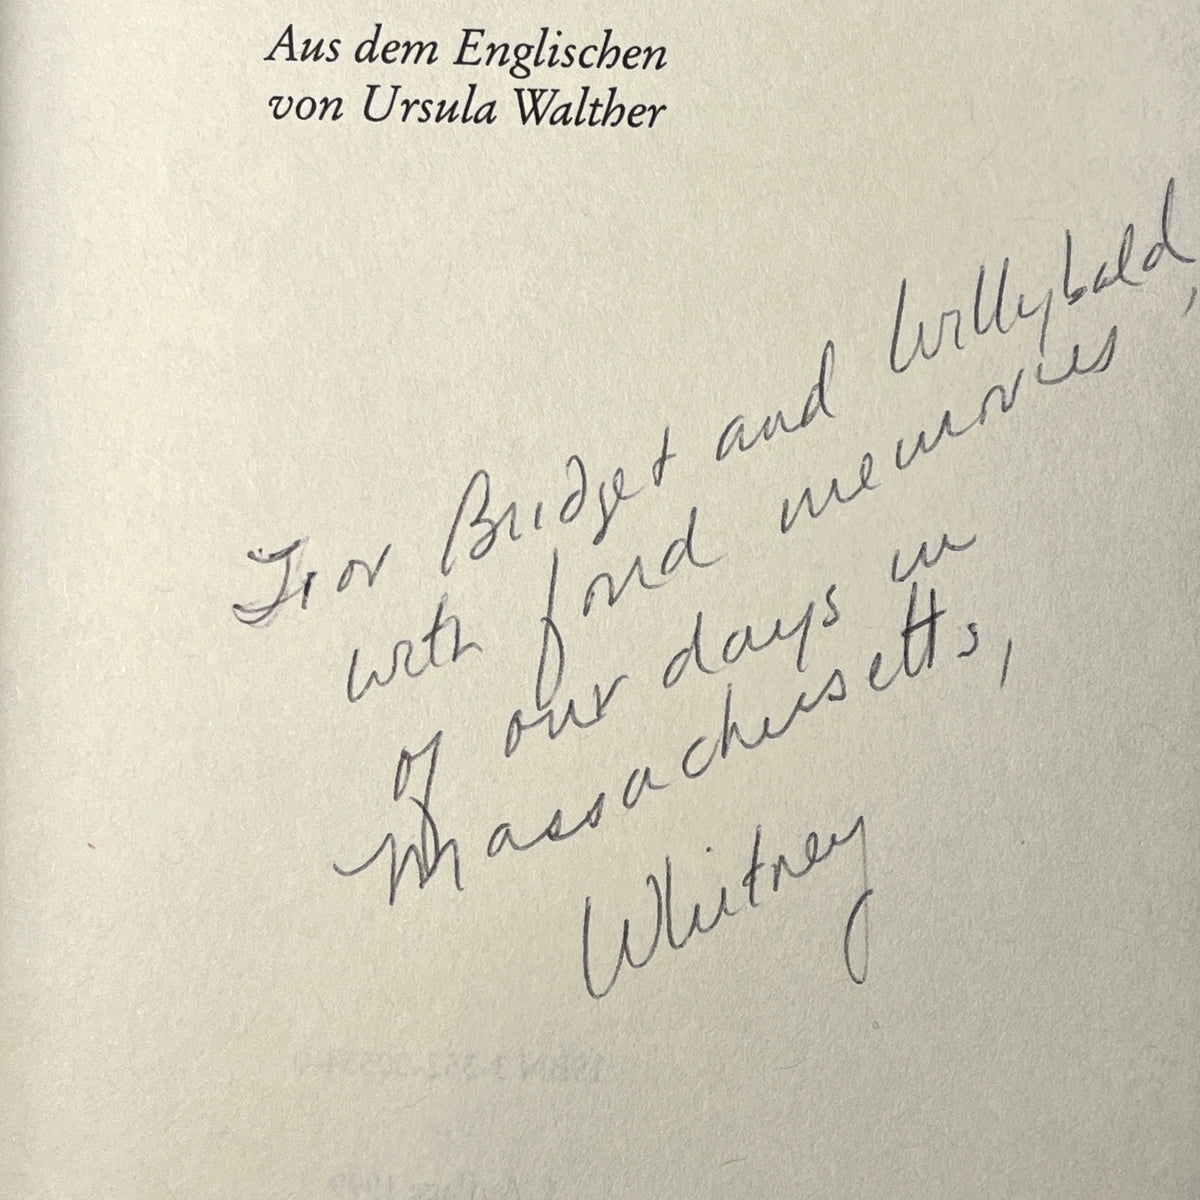 Aus dem Englischen
von Ursula Walther
For Bridget and Willybald,
with fond memories
of our days in
Massachusetts,
Whitney